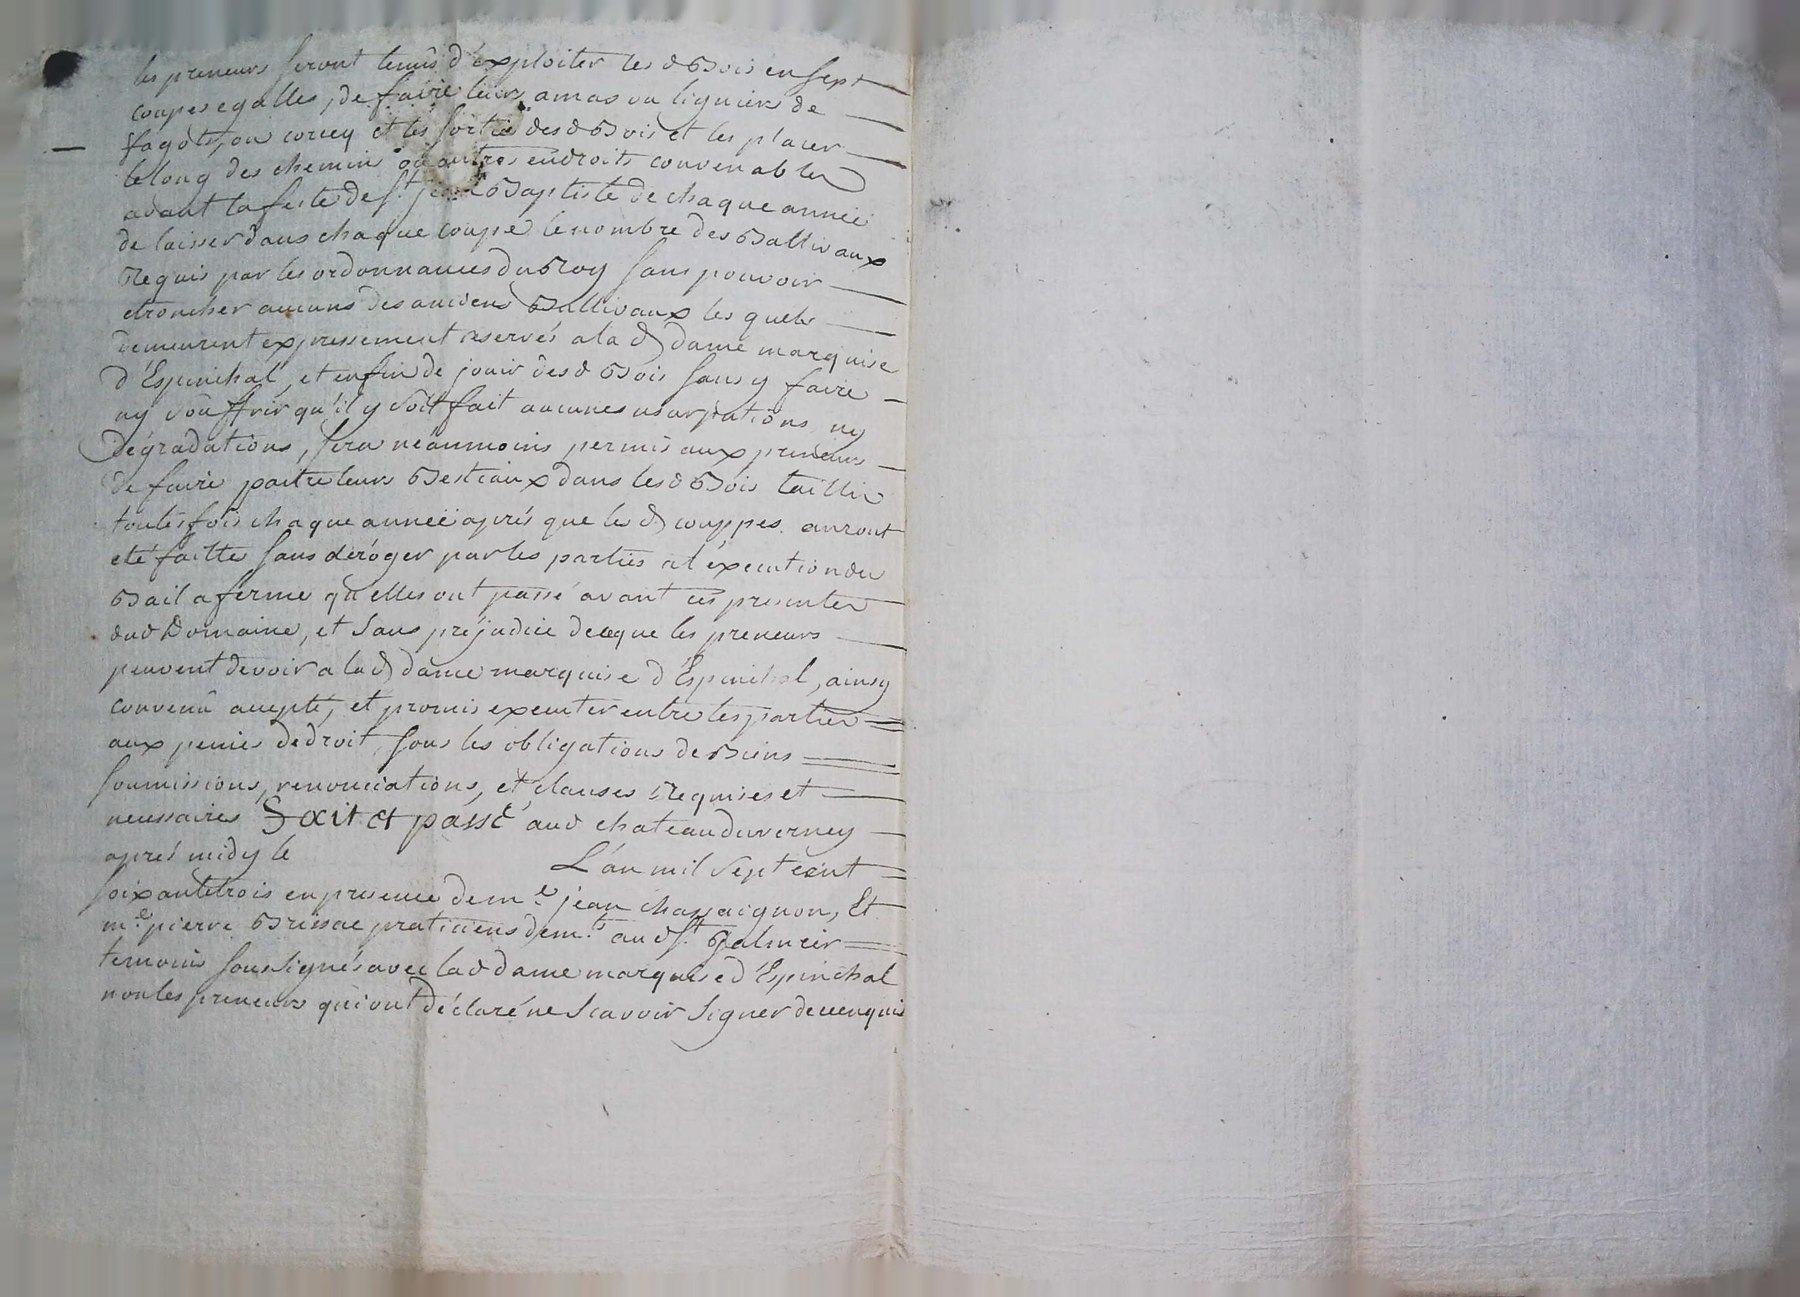 les preneurs seront tenûs d'exploiter les d Bois en sept
coupes egalles, de faire leurs amas ou ligniers de
fagots, ou corcey et les sortir des d Bois et les placer
le long des chemins ou autres endroits convenables
avant la feste de St jean Baptiste de chaque année
de laisser dans chaque coupe le nombre des Ballivaux
Requis par les ordonnances du Roy sans pouvoir
etroncher aucuns des anciens Ballivaux les quels
demeurent expressement reservés a la d dame marquise
d'Espinchal, et enfin de jouir des d Bois sans y faire
ny souffrir qu'il y soit fait aucunes usurpations ny
dégradations, sera néanmoins permis aux preneurs
de faire paitre leurs Bestiaux dans les d Bois taillis
toutes fois chaque année aprés que les d couppes auront
eté faittes sans deróger par les parties a l'éxecution du
Bail a ferme qu'elles ont passé avant ces presentes
dud Domaine, et sans préjudice de ce que les preneurs
peuvent devoir a la d dame marquise d'Espinchal, ainsy
convenû accepté, et promis executer entre les parties
aux peines de droit, sous les obligations de Biens
soumissions, renonciations, et clauses Requises et
necessaires Fait et passé aud chateau du verney
aprés midy le L'an mil sept cent
soixante trois en presence de me jean chassaignon, Et
me pierre Brissac praticiens demts aud St Galmier
temoins soussignés avec la d dame marquise d'Espinchal
non les preneurs qui ont déclaré ne scavoir signer de ce enquis